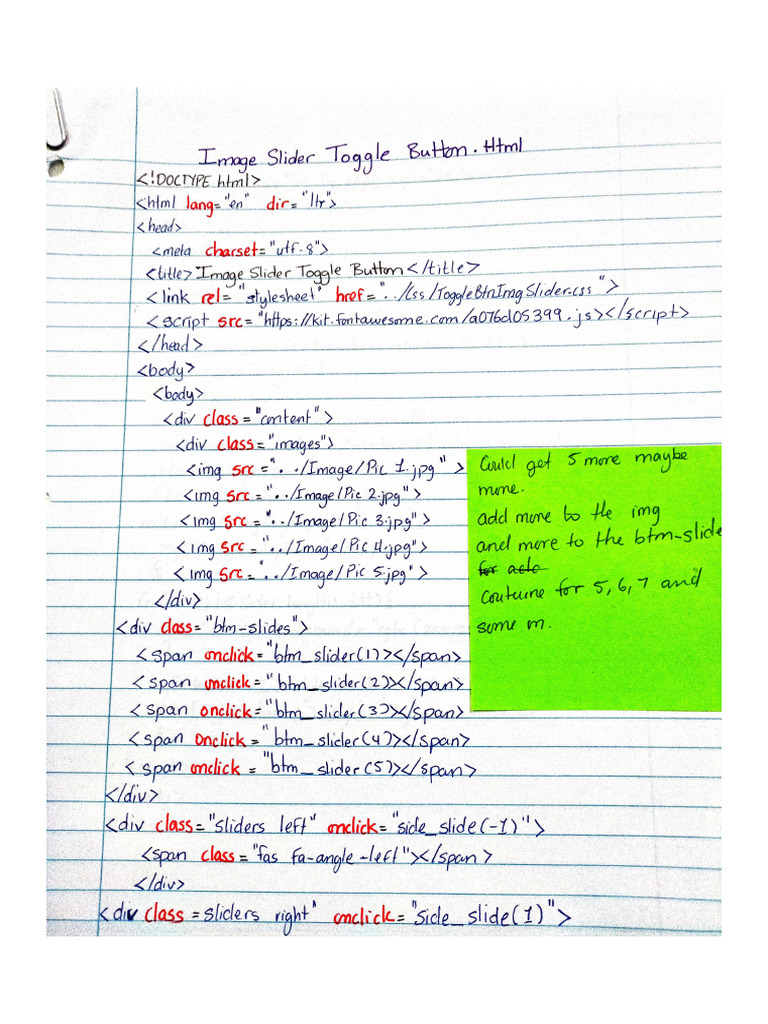 Image Slider Toggle Button.Html
<!DOCTYPE html>
<html lang="en" dir="ltr">
<head>
<meta charset="utf-8">
<title>Image Slider Toggle Button</title>
<link rel="stylesheet" href="../Css/ToggleBtnImgSlider.css">
<script src="https://kit.fontawesome.com/a076d05399.js></script>
</head>
<body>
<body>
<div class="content">
<div class="images">
<img src="../Image/Pic 1.jpg">
<img src="../Image/Pic 2.jpg">
<img src="../Image/Pic 3.jpg">
<img src="../Image/Pic 4.jpg">
<img src="../Image/Pic 5.jpg">
</div>
<div class="btm-slides">
<span onclick="btm_slider(1)></span>
<span onclick="btm_slider(2)></span>
<span onclick="btm_slider(3)></span>
<span onclick="btm_slider(4)></span>
<span onclick="btm_slider(5)></span>
</div>
<div class="sliders left" onclick="side_slide(-1)">
<span class="fas fa-angle-left"></span>
</div>
<div class=sliders right" onclick="side_slide(1)">
Could get 5 more maybe
more.
add more to the img
and more to the btm-slide
for
for 5, 6, 7 and
some m.